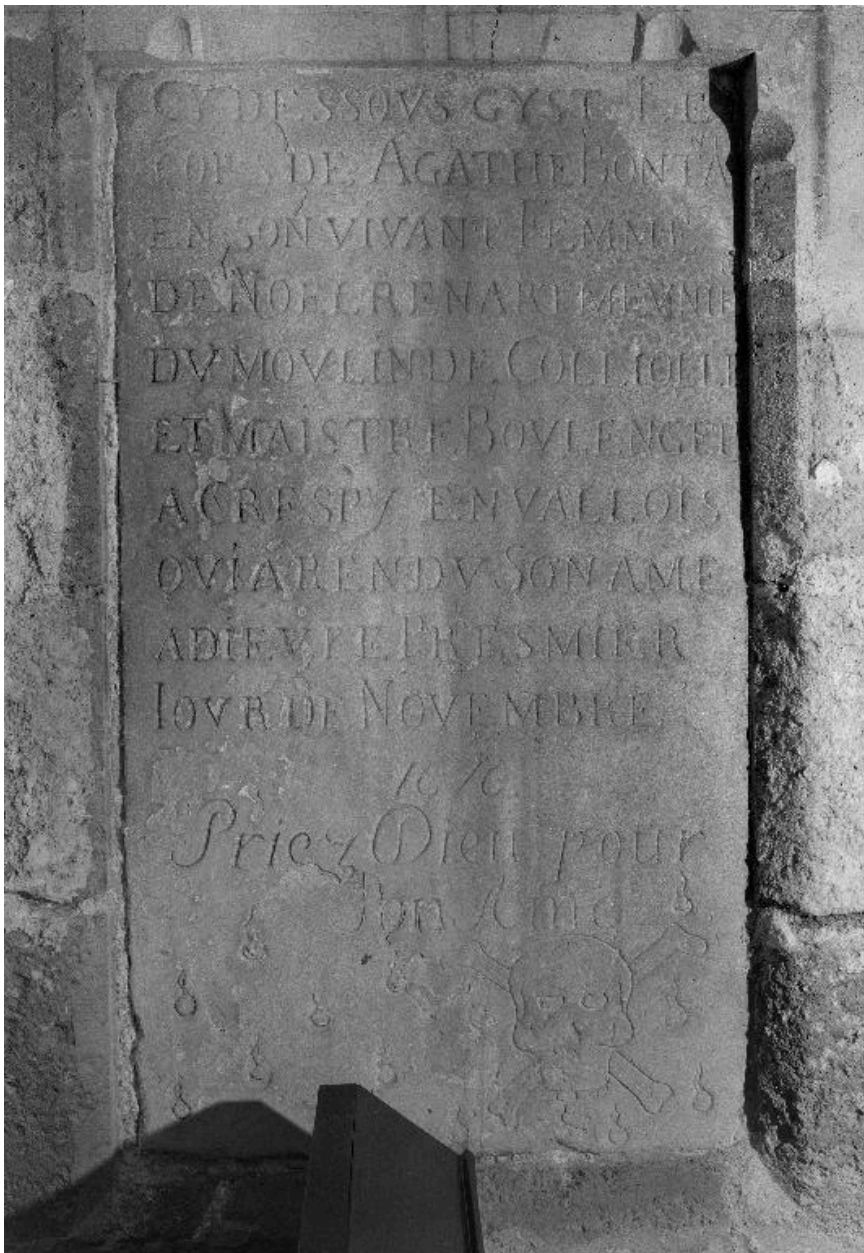 CY DESSOVS GYST LE
COPS DE AGATHE BONTA
EN SON VIVANT FEMME
DE NOEL RENART MEVNIE
DV MOVLIN DE
ET MAISTRE BOVLENGER
A CRESPY EN VALLOIS
QVI A RENDV SON AME
A DIEV LE PRESMIER
IOVR DE NOVEMBRE
Priez Dieu pour
Son Ame